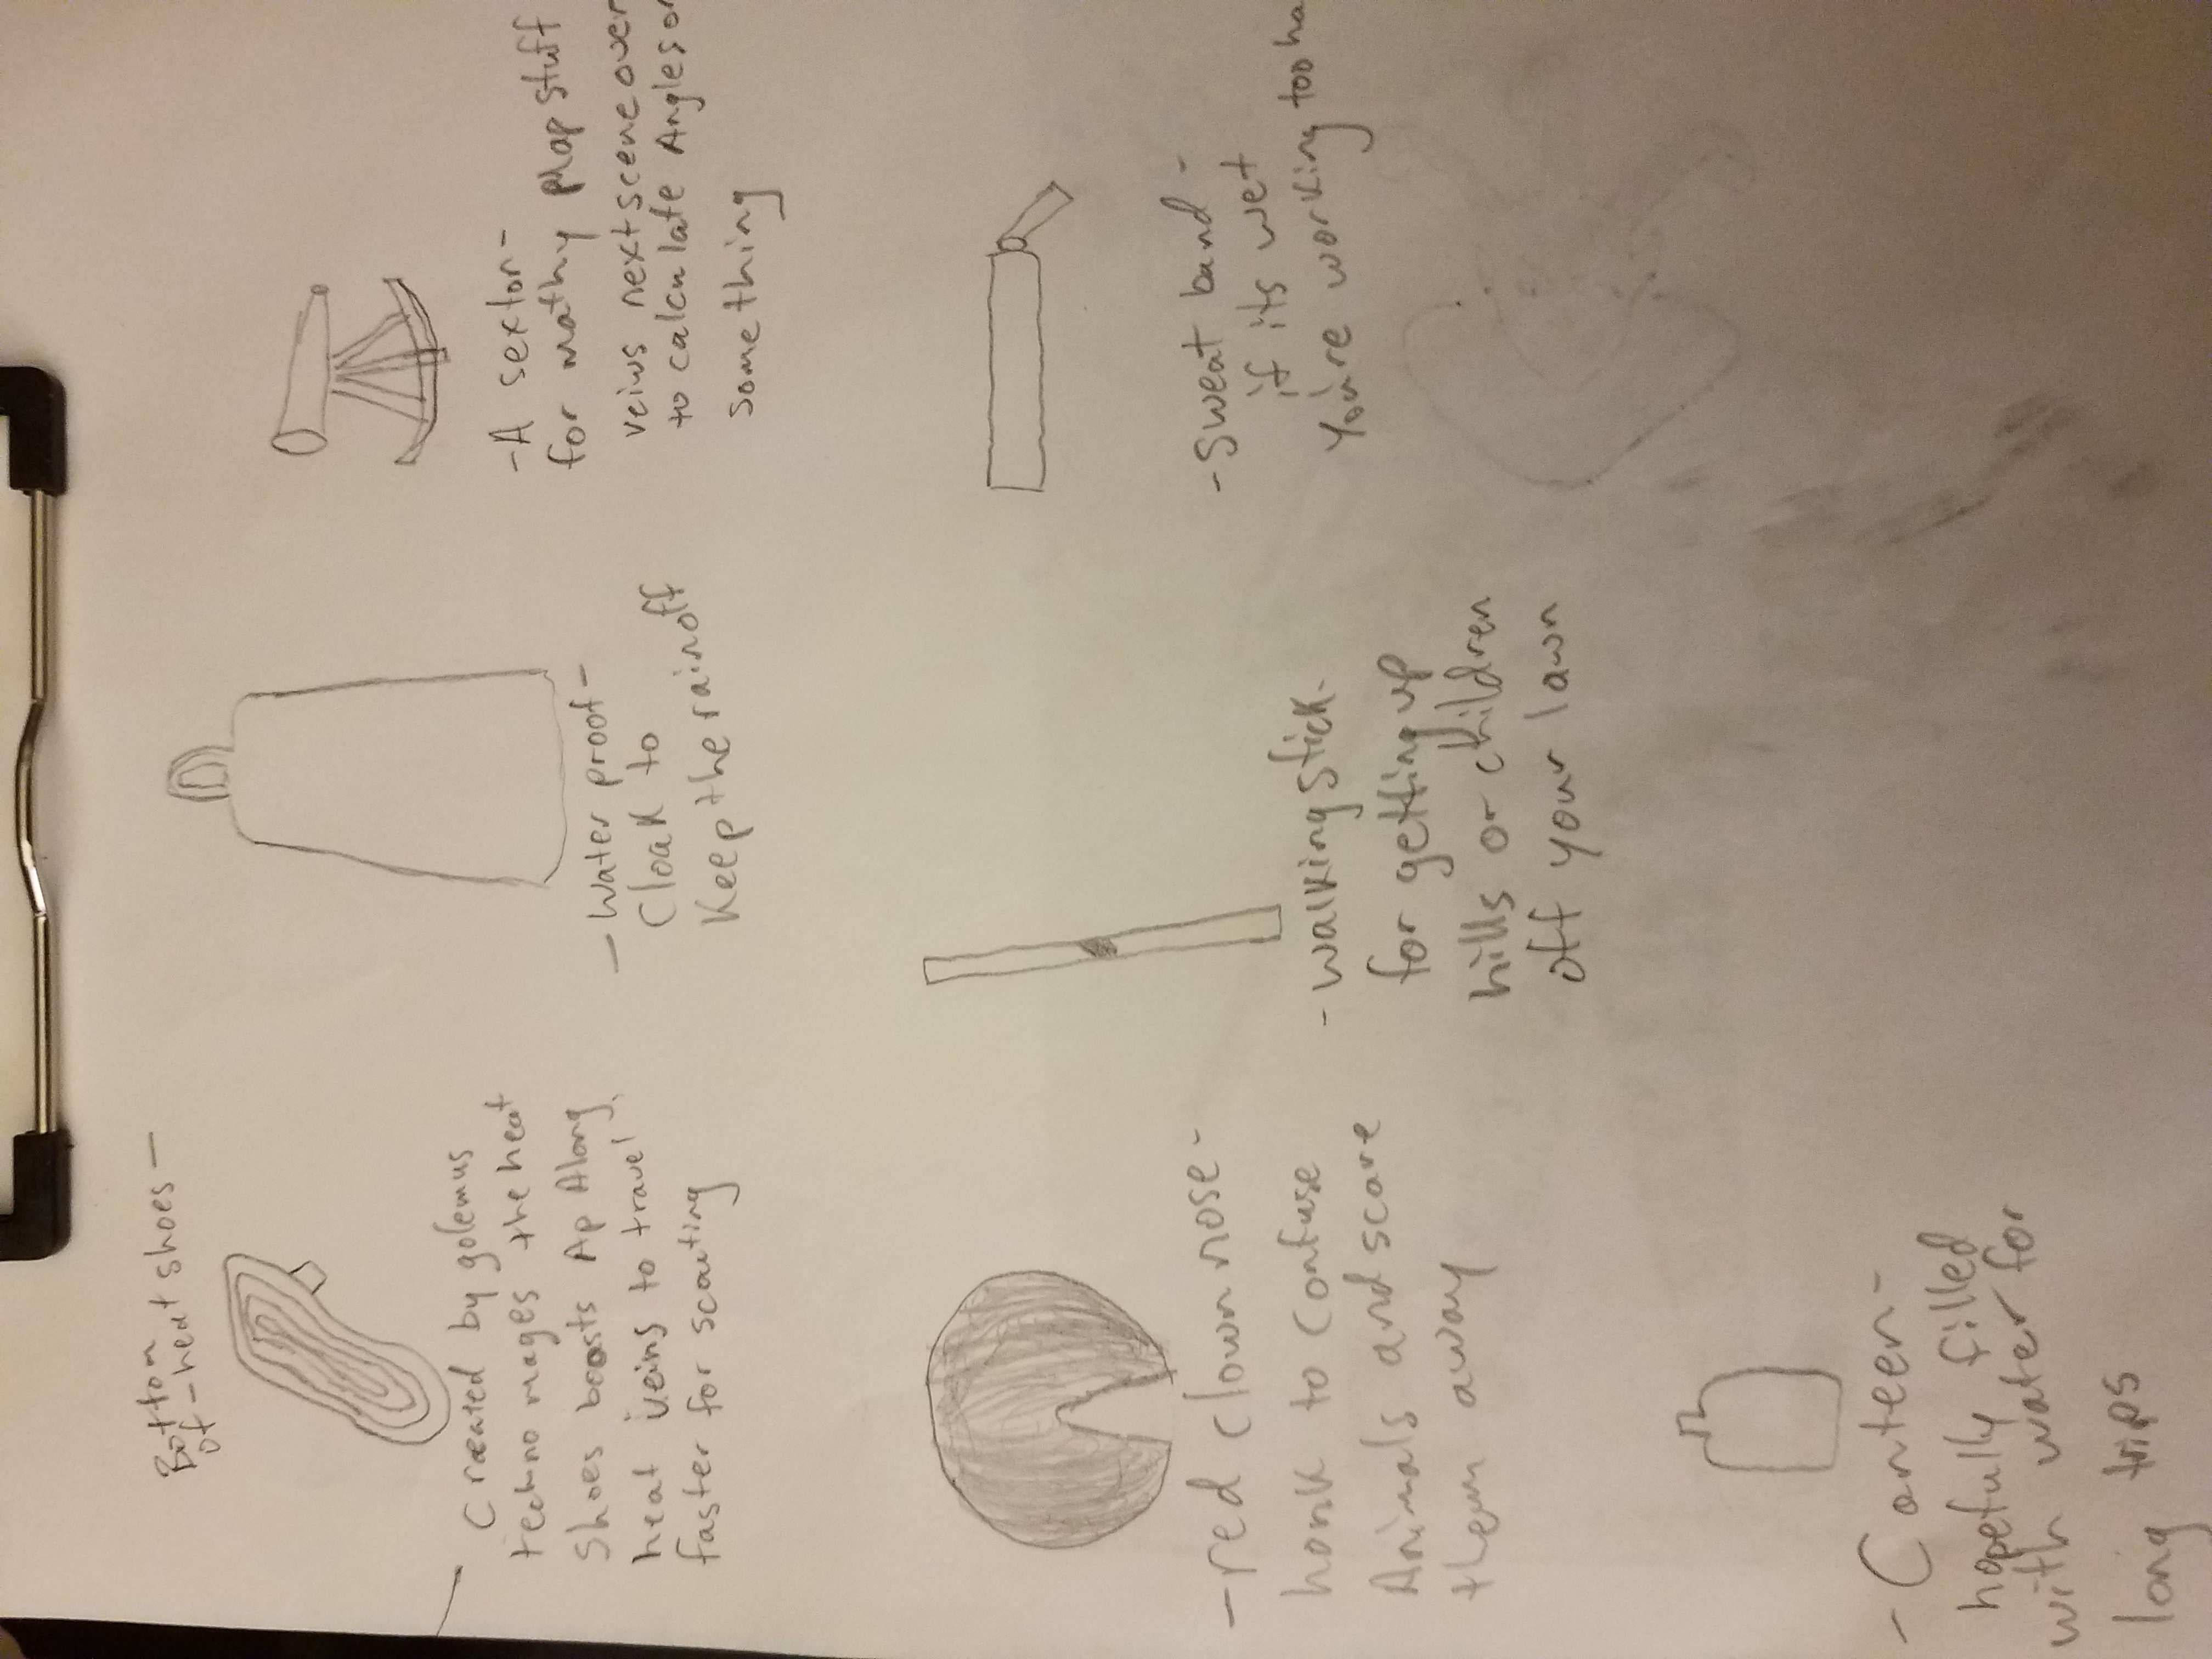 Bottom
of - heat shoes -
Created by golemus
techno mages the heat
shoes boosts Ap Along
heat veins to travel
faster for scouting
- water proof -
cloak to
keep the rain off
- A sexton -
for mathy plop stuff
veiws next scene over
to calculate Angles or
something
- red clown nose -
honk to confuse
Animals and scare
them away
- walking stick -
for getting up
hills or children
off your lawn
- sweat band -
if its wet
You're working too ha
- Canteen -
hopefully filled
with water for
long trips